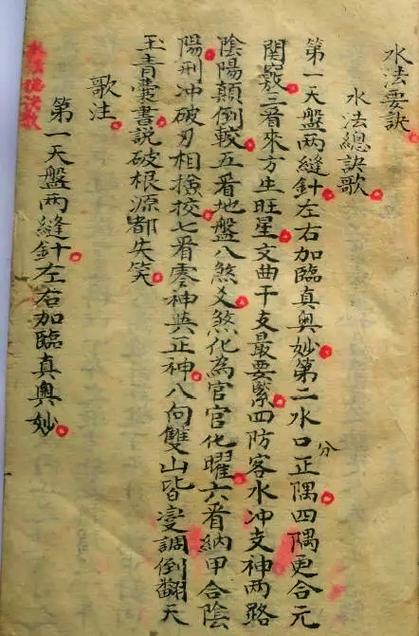 水法要訣
水法總訣歌
第一天盤兩縫針左右加臨真奧妙第二水口分正隅四隅更合元
関竅三看來方生旺星文曲干支最要緊四防客水冲支神兩路
陰陽顛倒較五看地盤八煞爻煞化為官官化曜六看納甲合陰
陽刑冲破刃相撿挍七看零神與正神八向雙山皆變調倒翻天
玉青囊書說破根源都失笑
歌注
第一天盤兩縫針左右加臨真奧妙